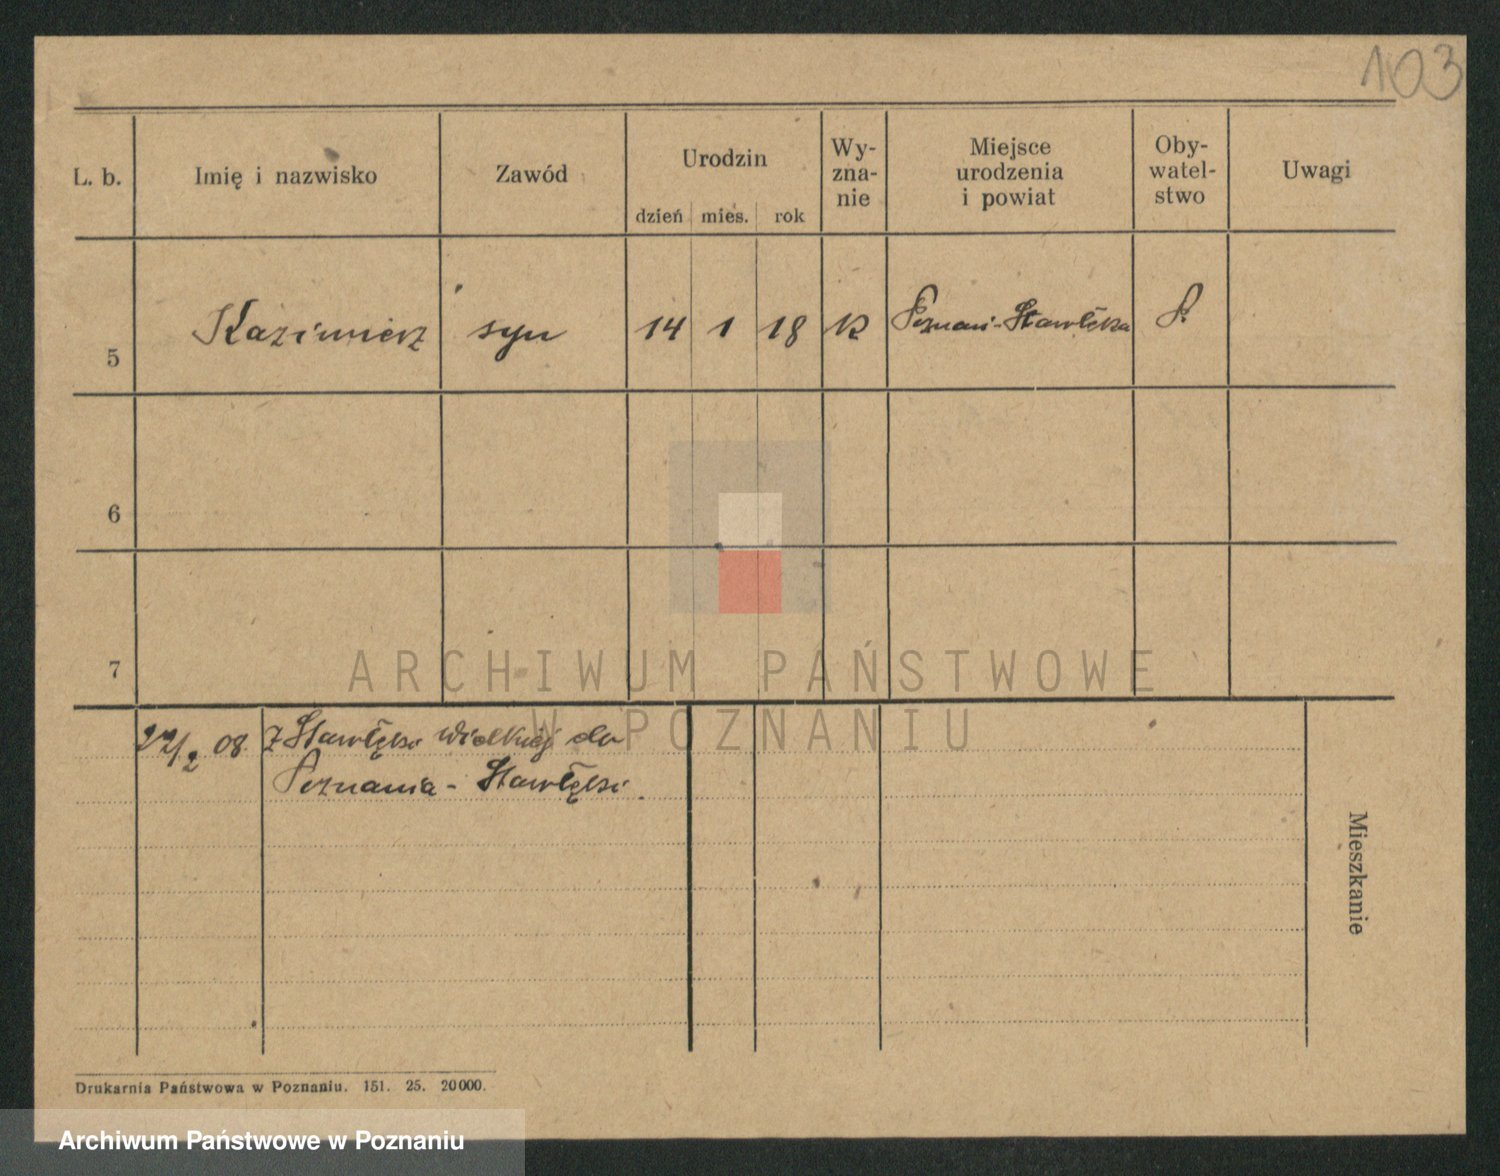 103
L. b.
Imię i nazwisko
Zawód
Urodzin
dzień mies. rok
Wy-
zna-
nie
Miejsce
urodzenia
i powiat
Oby-
watel-
stwo
Uwagi
5 Kazimierz syn 14 1 18 K Poznań-Starołęka P.
6
7
ARCHIWUM PAŃSTWOWE
W POZNANIU
/2 08. Z Starołęki wielkiej do
Poznania - Starołęki.
Mieszkanie
Drukarnia Państwowa w Poznaniu. 151. 25. 20000.
Archiwum Państwowe w Poznaniu